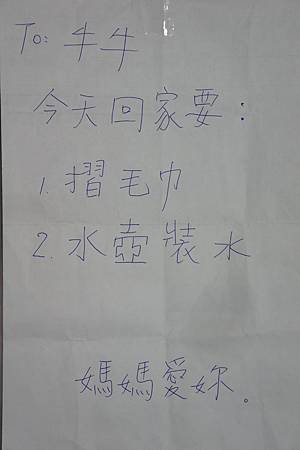 To: 牛牛
今天回家要：
1. 摺毛巾
2. 水壺裝水
媽媽愛妳。